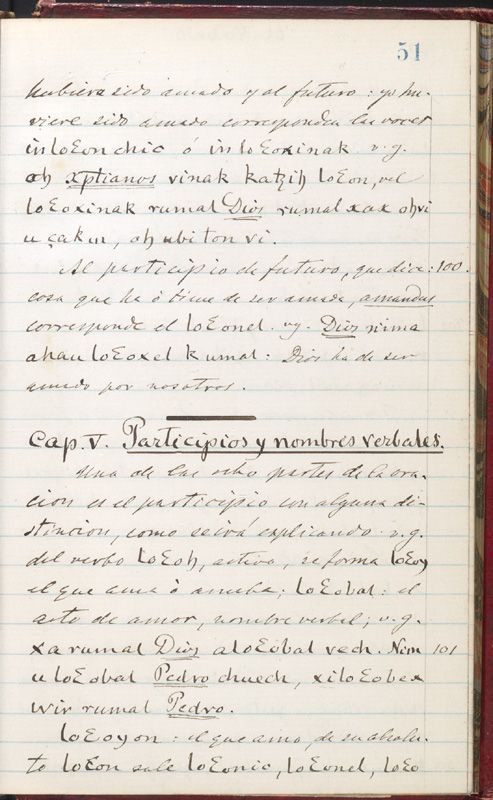 51
hubiera sido amado y al futuro: yo hu-
viere sido amado corresponden las voces
in loƐon chic ó in loƐoxinak v.g.
oh xptianos vinak katzih loƐon, vel
loƐoxinak rumal Dios rumal xax ohvi
u çakin, oh ubi ton vi.
Al participio de futuro, que dice: 100.
cosa que ha ó tiene de ser amada, amandus
corresponde el loƐonel. vg. Dios nima
ahau loƐoxel kumal: Dios ha de ser
amado por nosotros.
Cap. V. Participios y nombres verbales.
Una de las ocho partes de la ora-
cion es el participio con alguna di-
stincion, como se irá explicando. v.g.
del verbo loƐoh, activo, se forma loƐoy
el que ama ó amaba; loƐobal: el
acto de amor, nombre verbal; v.g.
xa rumal Dios aloƐobal vech. Nim 101
u loƐobal Pedro chuech, xiloƐobex
wir rumal Pedro.
loƐoyon: el que amo, de su absolu-
to loƐon sale loƐonic, loƐonel, loƐo